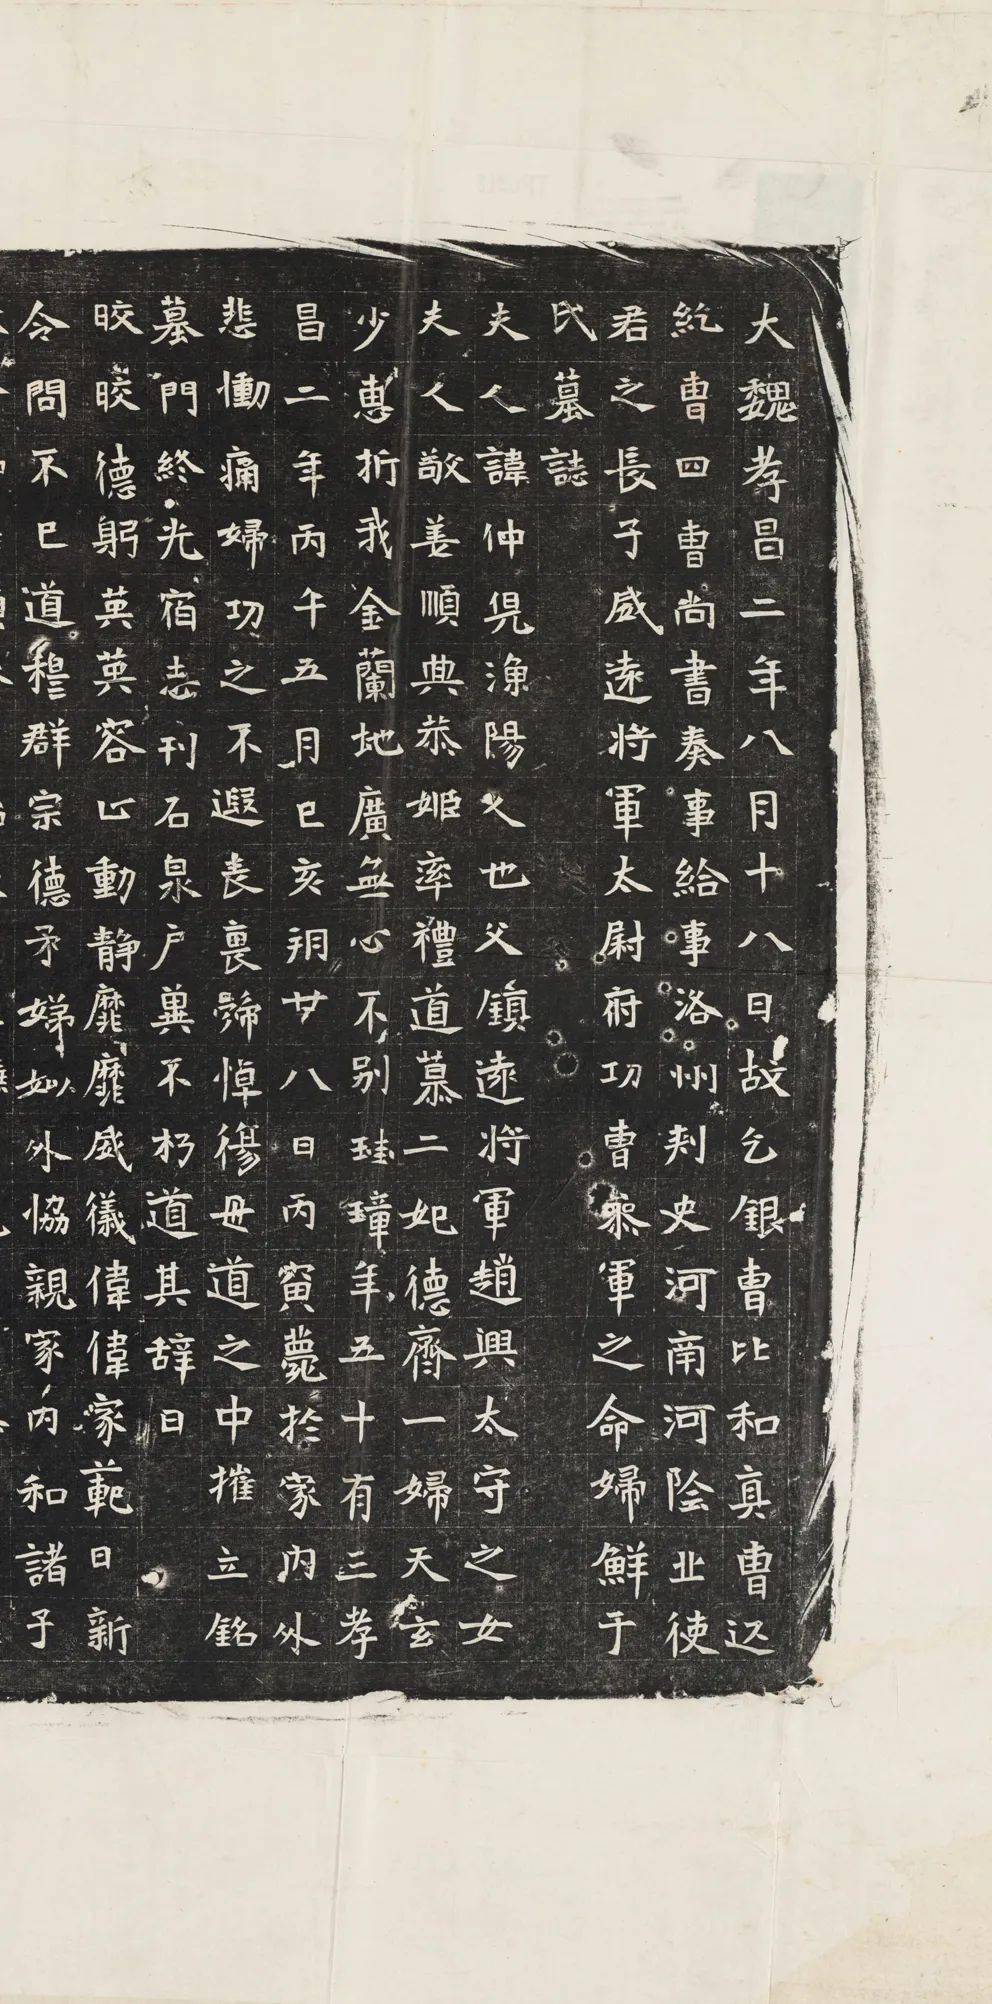 大魏孝昌二年八月十八日故乞銀曹比和真曹迟
紇曹四曹尚書奏事給事洛州刾史河南河陰北使
君之長子威遠将軍太尉府功曹叅軍之命婦鮮于
氏墓誌
夫人諱仲兒漁陽人也父鎮遠将軍趙興太守之女
夫人敬善順典恭姬率禮道慕二妃德齊一婦天玄
少惠折我金蘭地廣無心不别珪璋年五十有三孝
昌二年丙午五月己亥朔廿八日丙寅薨於家内外
悲慟痛婦功之不遐喪裹號悼傷毋道之中摧立銘
墓門終光宿志刊石泉户冀不朽道其辞曰
晈晈德躬英英容止動静靡靡威儀偉偉家範日新
令問不已道穆群宗德矛娣姒外恊親家内和諸子